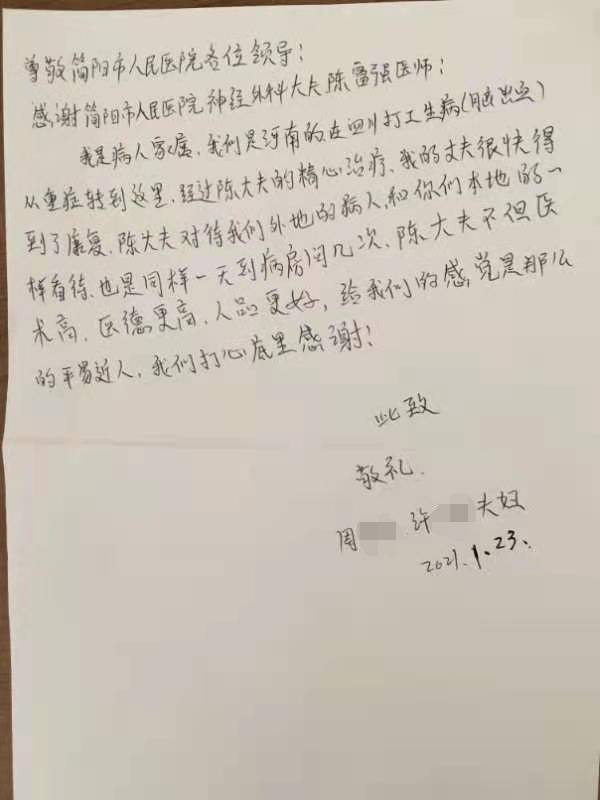 尊敬简阳市人民医院各位领导：
感谢简阳市人民医院神经外科大夫陈富强医师：
我是病人家属，我们是河南的在四川打工生病(脑出血)
从重症转到这里、经过陈大夫的精心治疗、我的丈夫很快得
到了康复、陈大夫对待我们外地的病人、和你们本地的一
样看待、也是同样一天到病房问几次、陈大夫不但医
术高、医德更高、人品更好，给我们的感觉是那么
的平易近人，我们打心底里感谢！
此致
敬礼.
周 许 夫妇
2021.1.23.